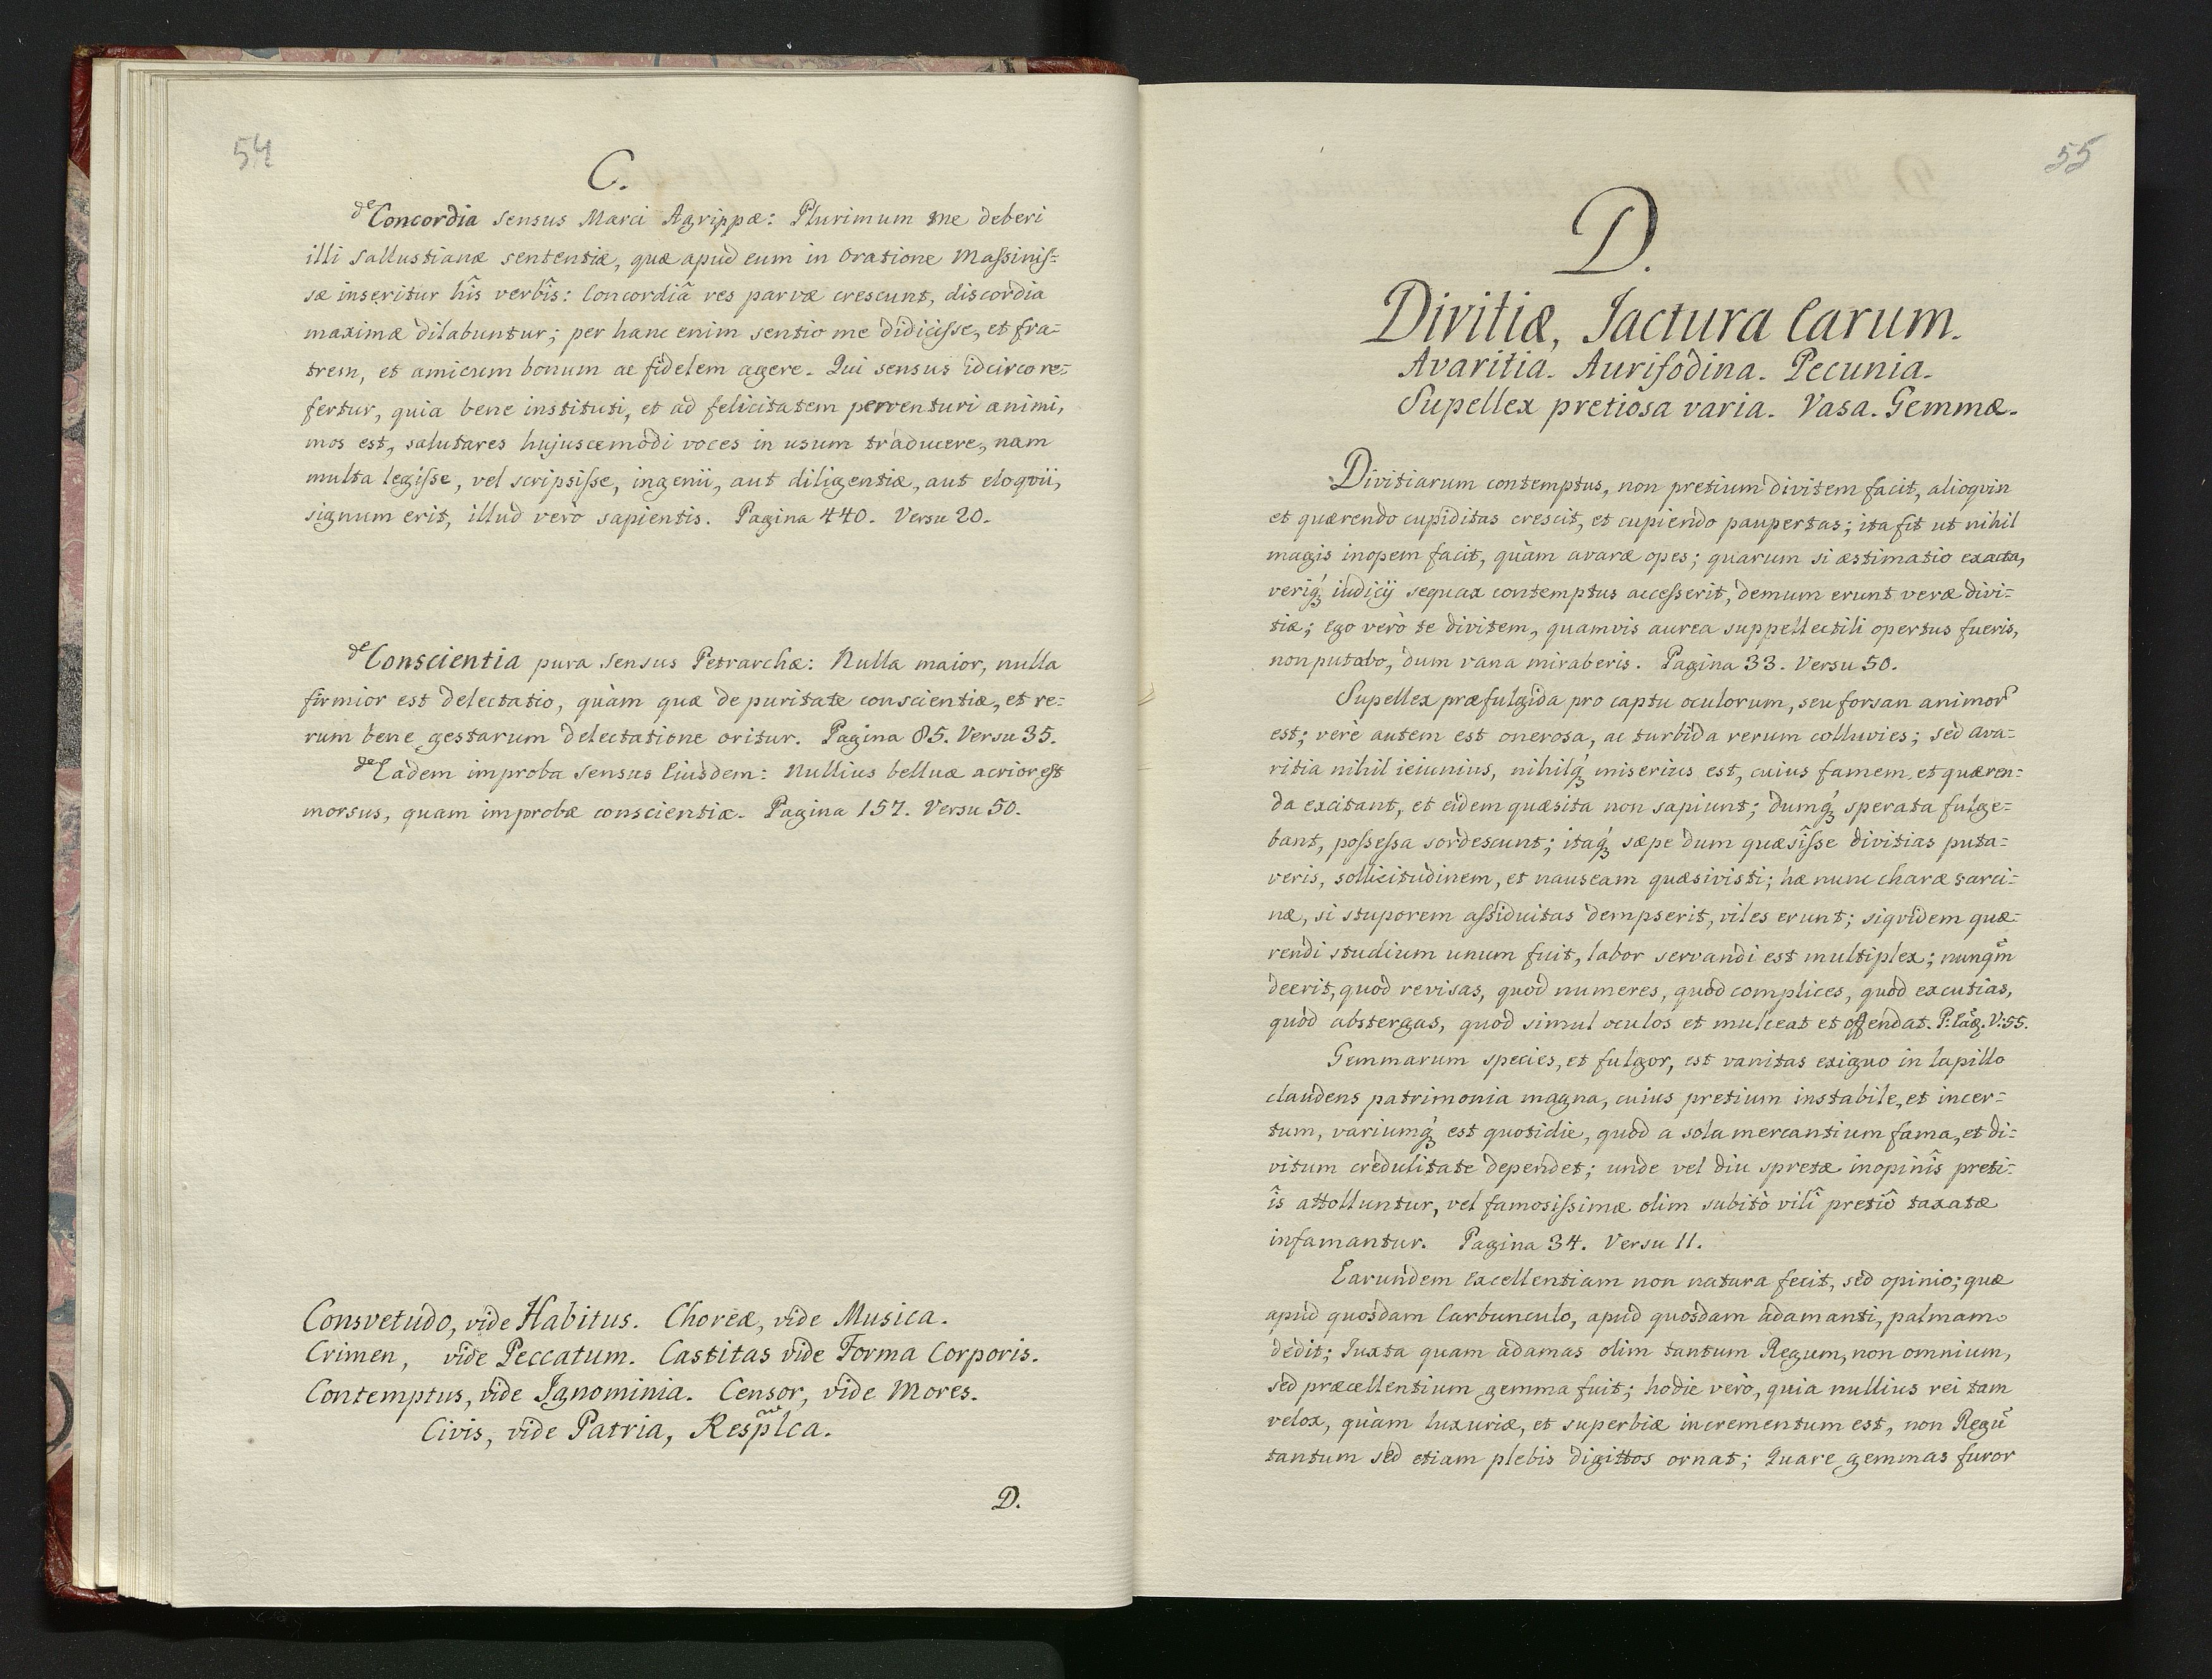 54
C.
de Concordia sensus Marci Agrippæ: Plurimum me deberi
illi sallustianæ sententiæ, quæ apud eum in Oratione Massinis=
sæ inseritur hîs verbîs: Concordiâ res parvæ crescunt, discordia
maximæ dilabuntur; per hanc enim sentio me didicisse, et fra=
trem, et amicum bonum ac fidelem agere. Qui sensus idcirco re=
fertur, quia bene instituti, et ad felicitatem perventuri animi,
mos est, salutares hujuscemodi voces in usum traducere, nam
multa legisse, vel scripsisse, ingenii, aut diligentiæ, aut eloqvii,
signum erit, illud verò sapientis. Pagina 440. Versu 20.
de Conscientia pura sensus Petrarchæ: Nulla maior, nulla
firmior est delectatio, quàm quæ de puritate conscientiæ, et re=
rum bene gestarum delectatione oritur. Pagina 85. Versu 35.
de Eadem improba sensus Eiusdem: Nullius belluæ acrior est
morsus, quam improbæ conscientiæ. Pagina 157. Versu 50.
Consvetudo, vide Habitus. Choreæ, vide Musica.
Crimen, vide Peccatum. Castitas vide Forma Corporis.
Contemptus, vide Ignominia. Censor, vide Mores.
Civis, vide Patria,Resplca.
D.
55
D.
Divitiæ, Jactura Earum.
Avaritia. Aurifodina. Pecunia.
Supellex pretiosa varia. Vasa. Gemmæ.
Divitiarum contemptus, non pretium divitem facit, alioqvin
et quærendo cupiditas crescit, et cupiendo paupertas; ita fit ut nihil
magis inopem facit, quàm avaræ opes; quarum si æstimatio exacta,
veriq́ꝫ iudicÿ sequax contemptus accesserit, demum erunt veræ divi=
tiæ; Ego verò te divitem, quamvis aurea suppellectili opertus fueris,
non putabo, dum vana miraberis. Pagina 33. Versu 50.
Supellex præfulgida pro captu oculorum, seu forsan animor̃
est; verè autem est onerosa, ac turbida rerum colluvies; sed Ava=
ritia nihil ieiunius, nihilq́ꝫ miserius est, cuius famem et quæren=
da excitant, et eidem quæsita non sapiunt; dumq́ꝫ sperata fulge=
bant, possessa sordescunt; itaq́ꝫ sæpe dum quæsîsse divitias puta=
veris, sollicitudinem, et nauseam quæsivisti; hæ nunc charæ sarci=
næ, si stuporem assiduitas dempserit, viles erunt; siqvidem quæ=
rendi studium unum fuit, labor servandi est multiplex; nunqm̃
deerit, quod revisas, quod numeres, quod complices, quod excutias,
quod abstergas, quod simul oculos et mulceat et offendat. P: Eãd. V: 55.
Gemmarum species, et fulgor, est vanitas exiguo in lapillo
claudens patrimonia magna, cuius pretium instabile, et incer=
tum, variumq́ꝫ est quotidie, quod a sola mercantium fama, et di=
vitum credulitate dependet; unde vel diu spretæ inopinîs preti=
îs attolluntur, vel famosissimæ olim subitò vilî pretiô taxatæ
infamantur. Pagina 34. Versu 11.
Earundem Excellentiam non natura fecit, sed opinio; quæ
apud quosdam Carbunculo, apud quosdam adamanti, palmam
dedit; Juxta quam adamas olim tantum Regum, non omnium,
sed præcellentium gemma fuit; hodie verò, quia nullius rei tam
velox, quàm luxuriæ, et superbiæ incrementum est, non Regũ
tantum sed etiam plebis digittos ornat; Quare gemmas furor